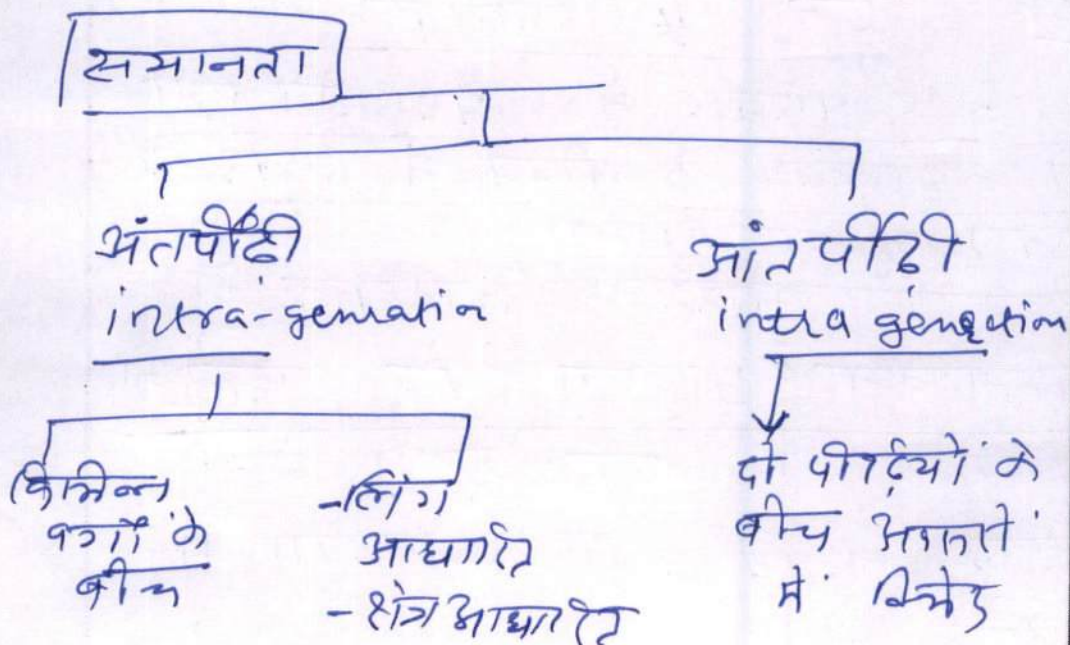 समानता
अंतर्पीढ़ी
intra-genration
विभिन्न
वर्गों के
बीच
-लिंग
आधारित
-क्षेत्र आधारित
आंत पीढ़ी
intra genetion
दो पीढ़ियों के
बीच अवसरों
में विभेद